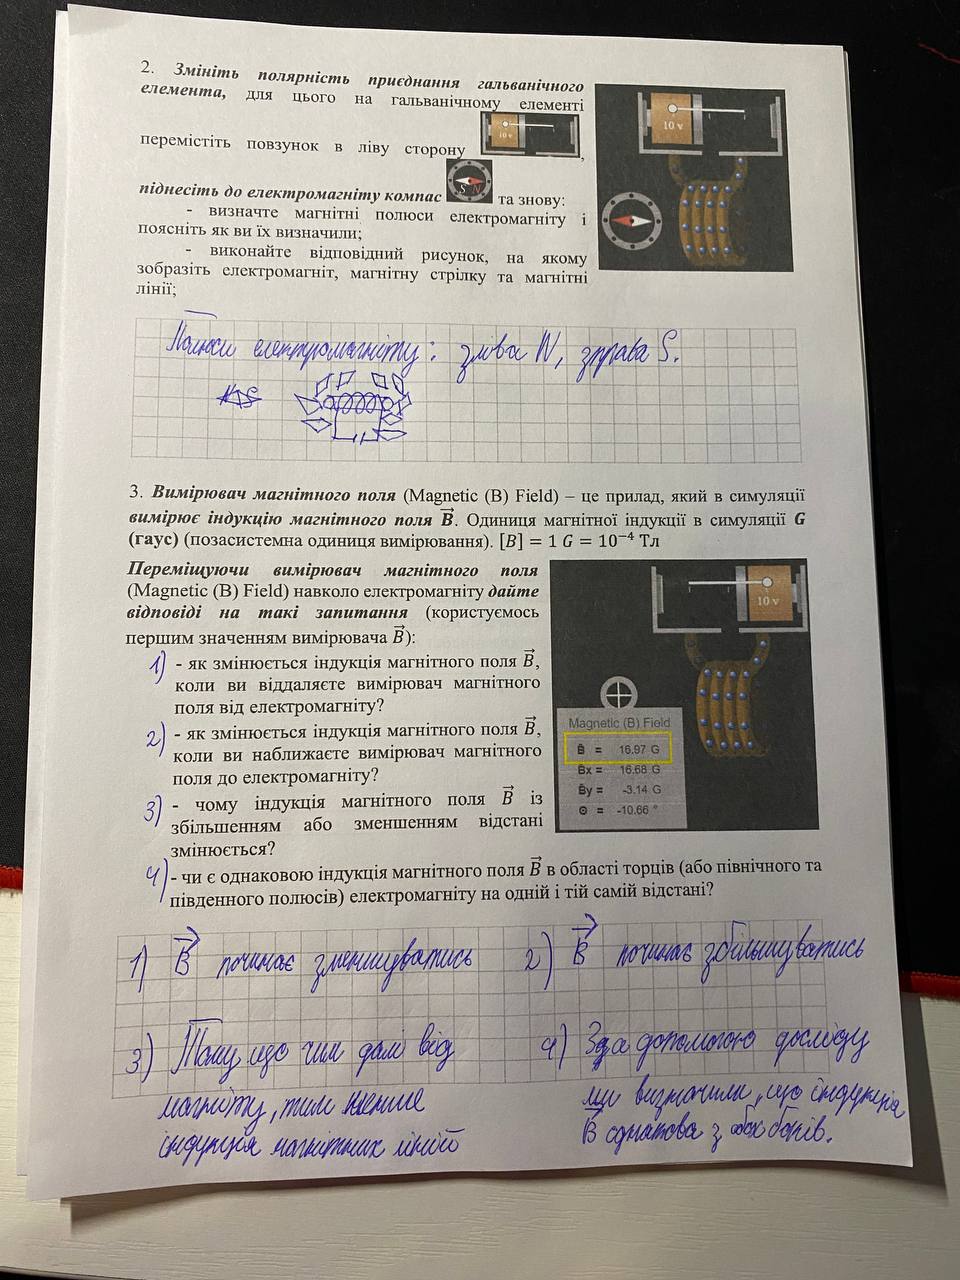 2. Змініть полярність приєднання гальванічного
елемента, для цього на гальванічному елементі
10 v
перемістіть повзунок в ліву сторону
10 v
,
піднесіть до електромагніту компас
S N
та знову:
- визначте магнітні полюси електромагніту і
поясніть як ви їх визначили;
- виконайте відповідний рисунок, на якому
зобразіть електромагніт, магнітну стрілку та магнітні
лінії;
Полюси електромагніту: зліва N, зправа S.
N S
3. Вимірювач магнітного поля (Magnetic (B) Field) – це прилад, який в симуляції
вимірює індукцію магнітного поля B⃗. Одиниця магнітної індукції в симуляції G
(гаус) (позасистемна одиниця вимірювання). [B] = 1 G = 10⁻⁴ Тл
Переміщуючи вимірювач магнітного поля
(Magnetic (B) Field) навколо електромагніту дайте
відповіді на такі запитання (користуємось
першим значенням вимірювача B⃗):
1) - як змінюється індукція магнітного поля B⃗,
коли ви віддаляєте вимірювач магнітного
поля від електромагніту?
2) - як змінюється індукція магнітного поля B⃗,
коли ви наближаєте вимірювач магнітного
поля до електромагніту?
3) - чому індукція магнітного поля B⃗ із
збільшенням або зменшенням відстані
змінюється?
10 v
Magnetic (B) Field
B = 16.97 G
Bx = 16.68 G
By = -3.14 G
Θ = -10.66 °
4) - чи є однаковою індукція магнітного поля B⃗ в області торців (або північного та
південного полюсів) електромагніту на одній і тій самій відстані?
1) B⃗ починає зменшуватись
2) B⃗ починає збільшуватись
3) Тому що чим далі від
магніту, тим менше
індукція магнітних ліній
4) За допомогою досліду
ми визначили, що індукція
B⃗ однакова з обох боків.